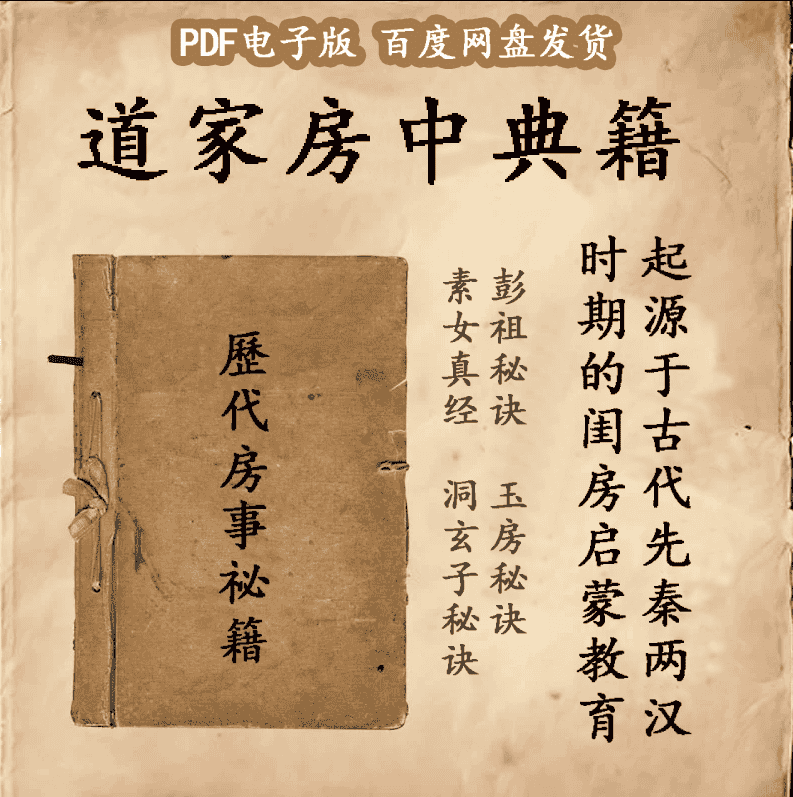 PDF电子版 百度网盘发货
道家房中典籍
起源于古代先秦两汉
时期的闺房启蒙教育
彭祖秘诀 玉房秘诀
素女真经 洞玄子秘诀
歷代房事祕籍